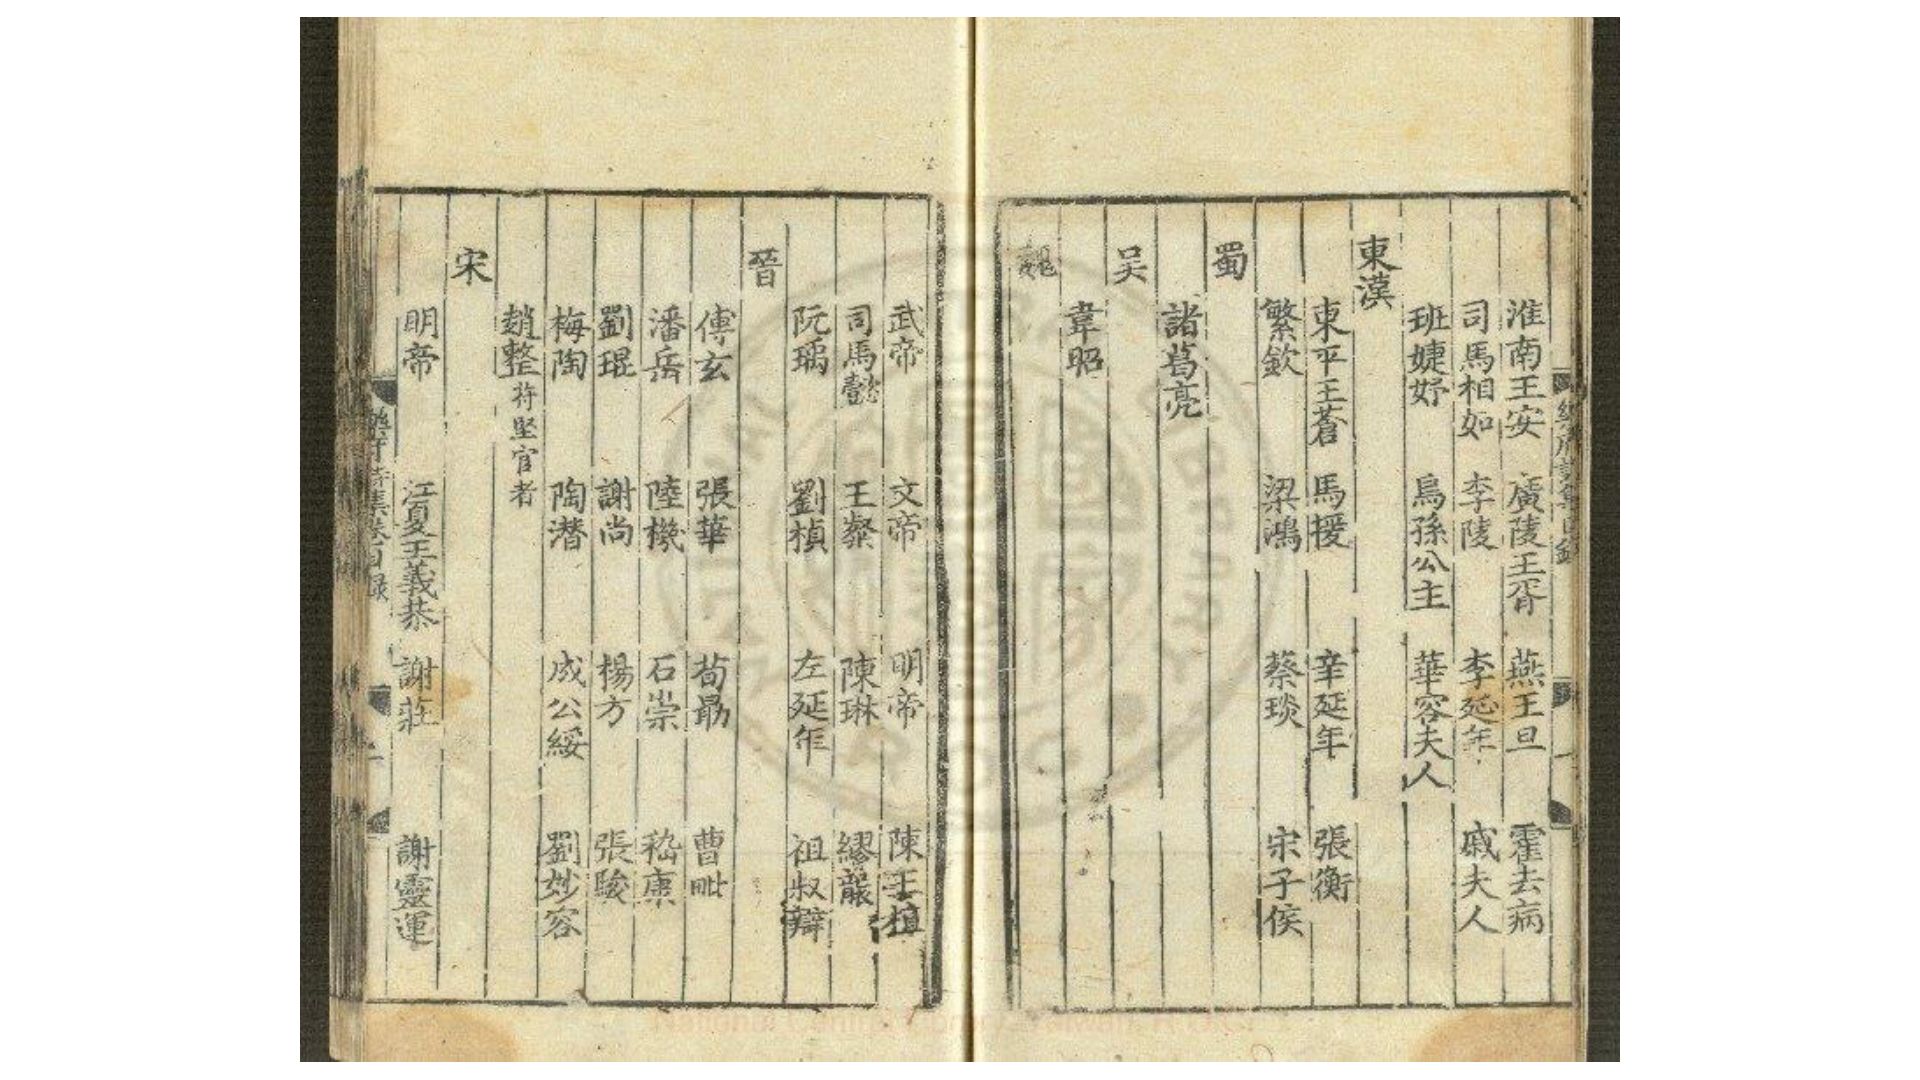 淮南王安 廣陵王胥 燕王旦 霍去病
司馬相如 李陵 李延年 戚夫人
班婕妤 烏孫公主 華容夫人
東漢
東平王蒼 馬援 辛延年 張衡
繁欽 梁鴻 蔡琰 宋子侯
蜀
諸葛亮
吳
韋昭
武帝 文帝 明帝 陳王植
司馬懿 王粲 陳琳 繆襲
阮瑀 劉楨 左延年 祖叔辯
晉
傅玄 張華 荀勗 曹毗
潘岳 陸機 石崇 嵇康
劉琨 謝尚 楊方 張駿
梅陶 陶潛 成公綏 劉妙容
趙整 苻堅官者
宋
明帝 江夏王義恭 謝莊 謝靈運